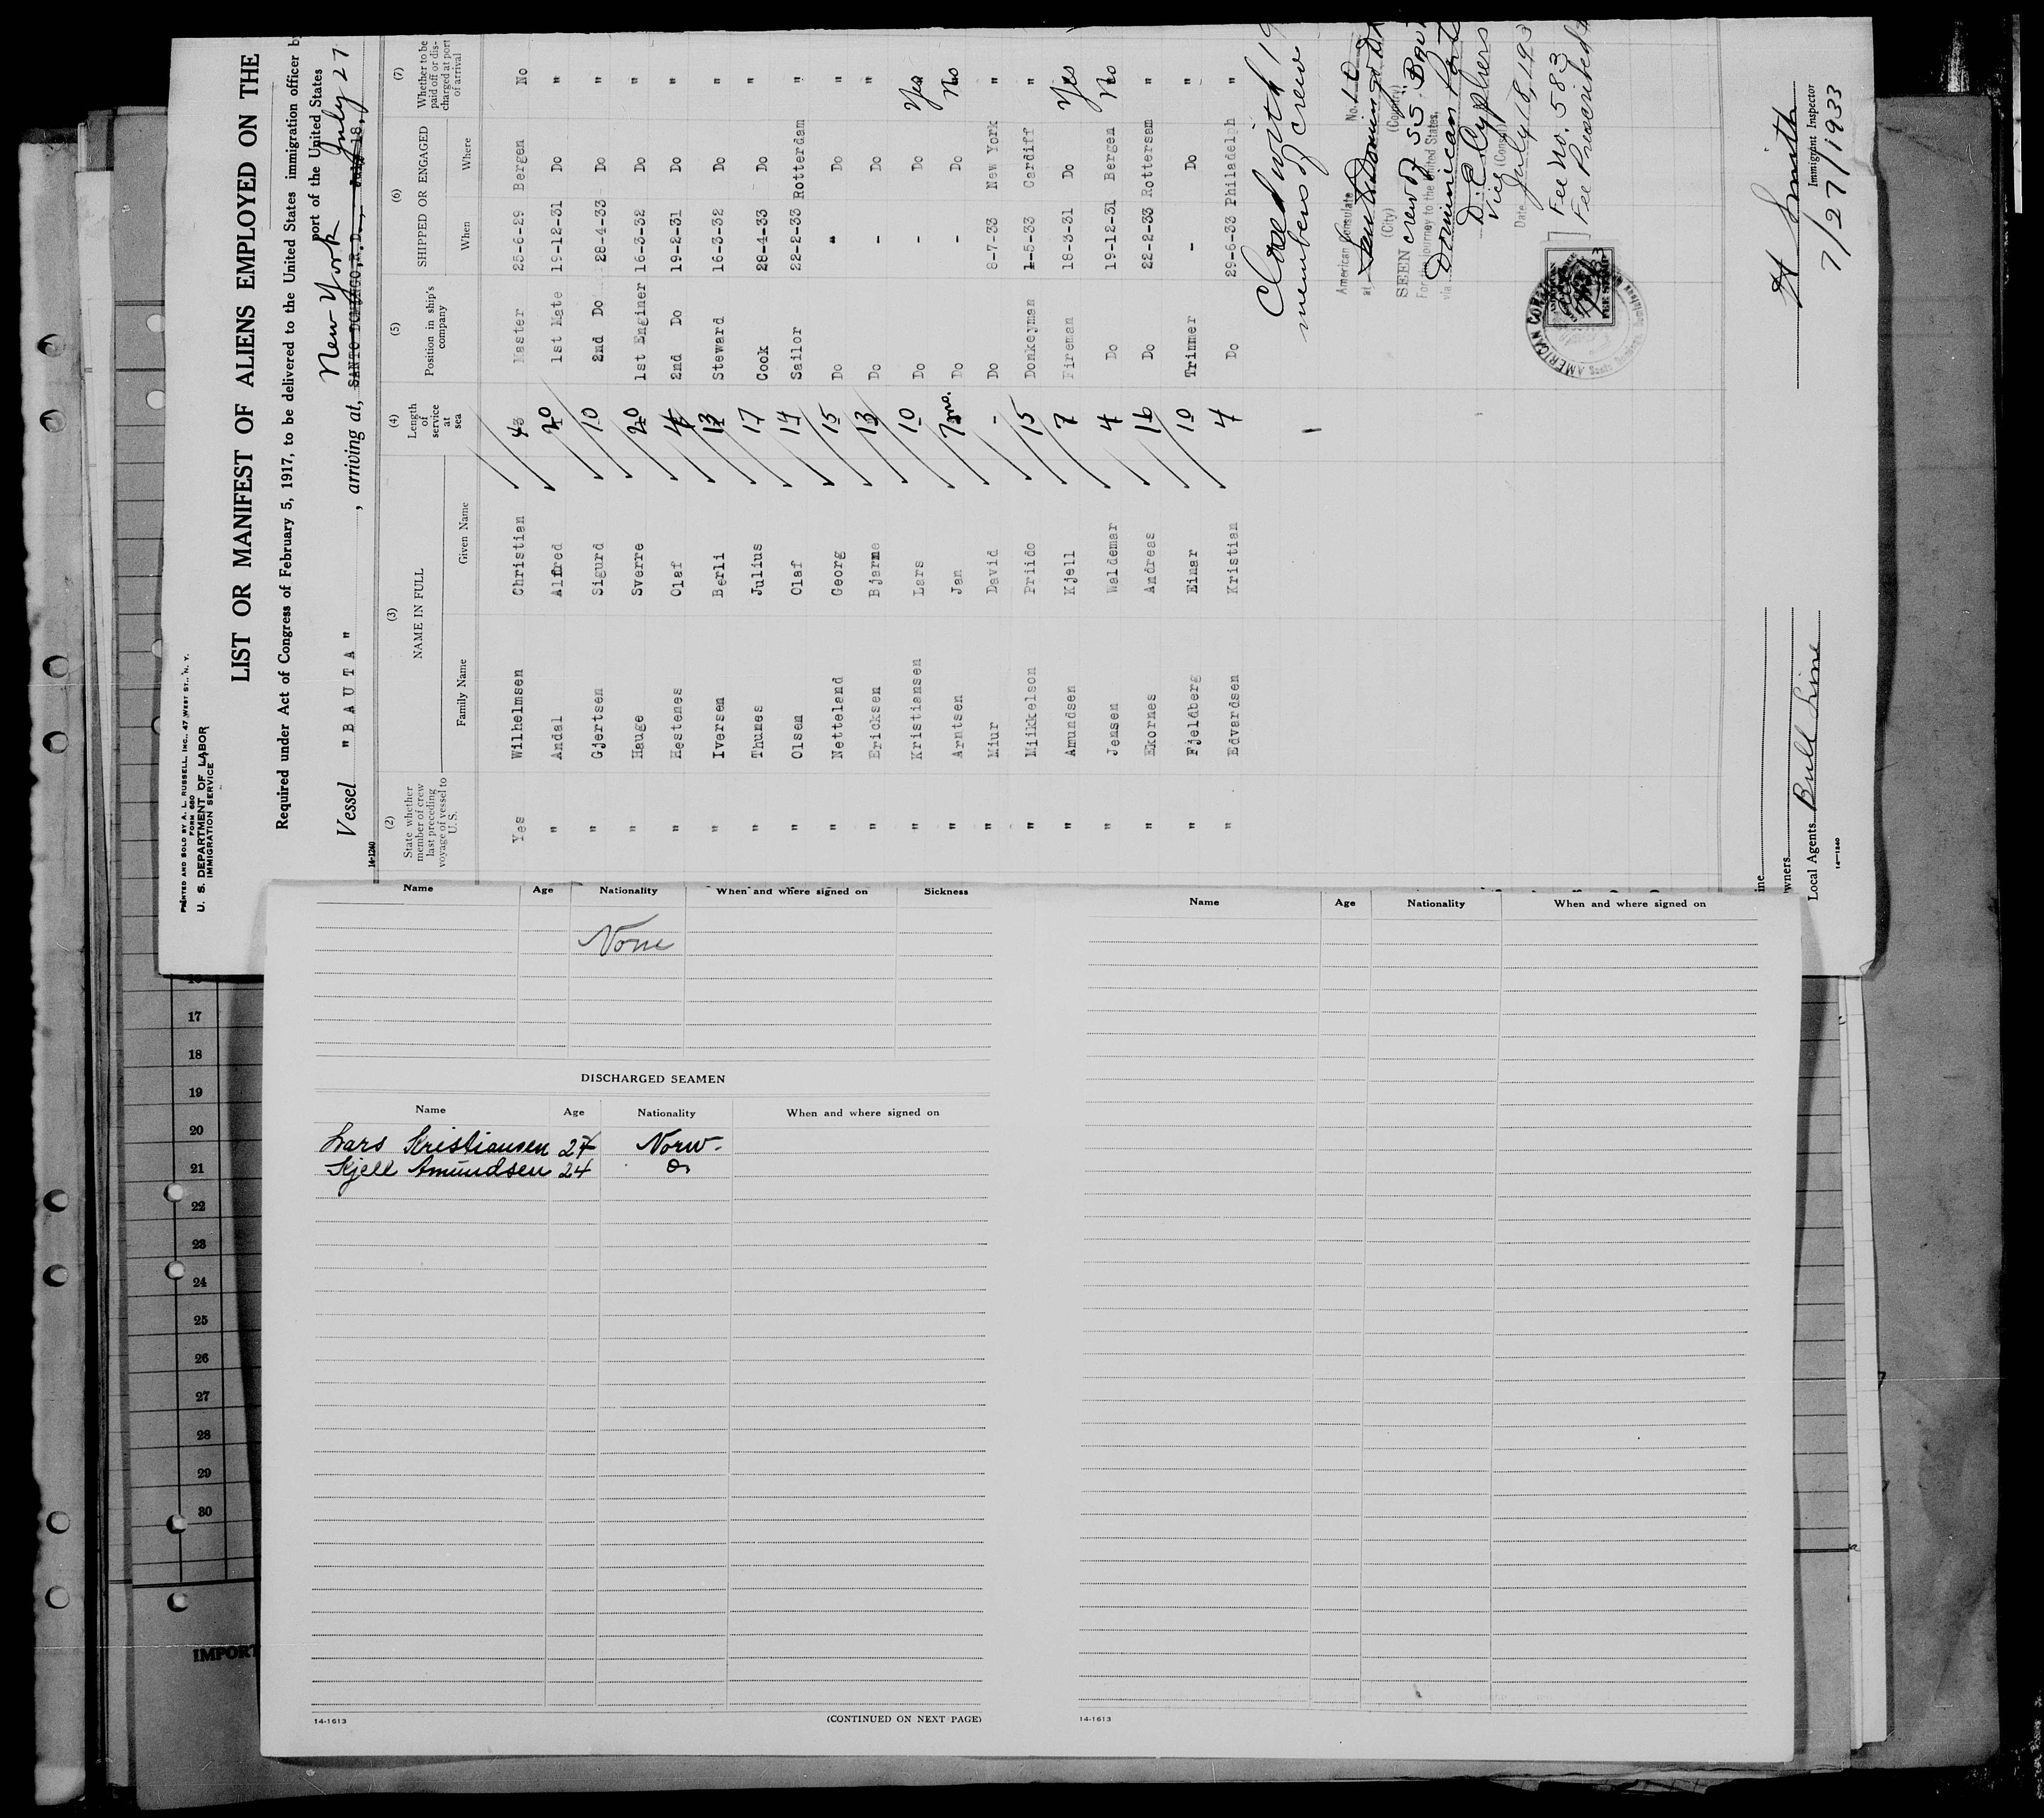 PRINTED AND SOLD BY A. L. RUSSELL, INC., 47 WEST ST., N. Y.
FORM 680
U. S. DEPARTMENT OF LABOR
IMMIGRATION SERVICE
LIST OR MANIFEST OF ALIENS EMPLOYED ON THE
Required under Act of Congress of February 5, 1917, to be delivered to the United States immigration officer by
port of the United States
New York July 27
Vessel "BAUTA", arriving at, SANTO DOMINGO, R.D., July 18,
14-1240
(2) (3) (4) (5) (6) (7)
State whether member of crew last preceding voyage of vessel to U. S. NAME IN FULL Length of service at sea Position in ship's company SHIPPED OR ENGAGED Whether to be paid off or discharged at port of arrival
Family Name Given Name When Where
Yes Wilhelmsen Christian 43 Master 25-6-29 Bergen No
" Andal Alfred 20 1st Mate 19-12-31 Do "
" Gjertsen Sigurd 10 2nd Do 28-4-33 Do "
" Hauge Sverre 20 1st Enginer 16-3-32 Do "
" Hestenes Olaf 4 2nd Do 19-2-31 Do "
" Iversen Berli 13 Steward 16-3-32 Do "
" Thunes Julius 17 Cook 28-4-33 Do "
" Olsen Olaf 14 Sailor 22-2-33 Rotterdam "
" Netteland Georg 15 Do " Do "
" Ericksen Bjarne 13 Do - Do "
" Kristiansen Lars 10 Do - Do Yes
" Arntsen Jan 7 mo. Do - Do No
" Miur David - Do 8-7-33 New York "
" Miikkelson Priido 15 Donkeyman 1-5-33 Cardiff "
" Amundsen Kjell 7 Fireman 18-3-31 Do Yes
" Jensen Waldemar 4 Do 19-12-31 Bergen No
" Ekornes Andreas 16 Do 22-2-33 Rottersam "
" Fjeldberg Einar 10 Trimmer - Do "
" Edvardsen Kristian 4 Do 29-6-33 Philadelph "
Closed with 19
members of crew
American Consulate No. 10
at Santo Domingo
(City) (Country)
SEEN crew of SS. Bauta
For the journey to the United States,
via Dominican
D. E. Cyphers
Vice (Consul)
Date July 18, 193
Fee No. 583
Fee Prescribed
AMERICAN
FEE STAMP
H Smith
Immigrant Inspector
7/27/1933
ine
wners
Local Agents Bull Line
14-1240
Name Age Nationality When and where signed on Sickness
None
DISCHARGED SEAMEN
Name Age Nationality When and where signed on
Lars Kristiansen 27 Norw-
Kjell Amundsen 24 Do
14-1613
(CONTINUED ON NEXT PAGE)
Name Age Nationality When and where signed on
14-1613
17
18
19
20
21
22
23
24
25
26
27
28
29
30
IMPORT